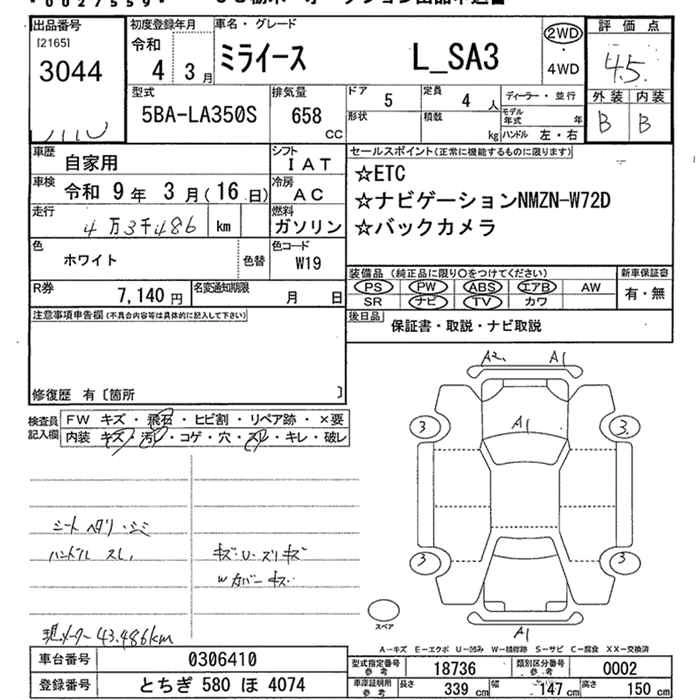 出品番号
[2165]
3044
初度登録年月
令和
4 3月
車名・グレード
ミライース L_SA3
2WD
・
4WD
評価点
4.5
外装 内装
B B
型式
5BA-LA350S
排気量
658
CC
ドア 5
定員 4 人
形状
積数 kg
ディーラー・並行
モデル年式 年
ハンドル 左・右
車歴 自家用
シフト
IAT
車検 令和 9年 3月(16日)
冷房
AC
走行 4万3千486 km
燃料
ガソリン
色
ホワイト
色替
色コード
W19
R券 7,140円
名変通知期限 月 日
セールスポイント(正常に機能するものに限ります)
☆ETC
☆ナビゲーションNMZN-W72D
☆バックカメラ
装備品 (純正品に限り○をつけてください)
PS PW ABS エアB AW
SR ナビ TV カワ
新車保証書
有・無
後日品
保証書・取説・ナビ取説
注意事項申告欄(不具合内容等は具体的に記入して下さい)
修復歴 有〔箇所 〕
検査員記入欄
FW キズ・飛石・ヒビ割・リペア跡・×要
内装 キズ・汚レ・コゲ・穴・スレ・キレ・破レ
シート ヘタリ・シミ
ハンドル スレ
キズ・U・スリキズ
Wカバーキズ
現メーター 43,486km
A2 A1
A1
3 3
3 3
A1
スペア
A-キズ E-エクボ U-凹み W-補修跡 S-サビ C-腐食 XX-交換済
車台番号 0306410
登録番号 とちぎ 580 ほ 4074
型式指定番号参考 18736
類別区分番号参考 0002
車庫証明用参考 長さ 339 cm 幅 147 cm 高さ 150 cm